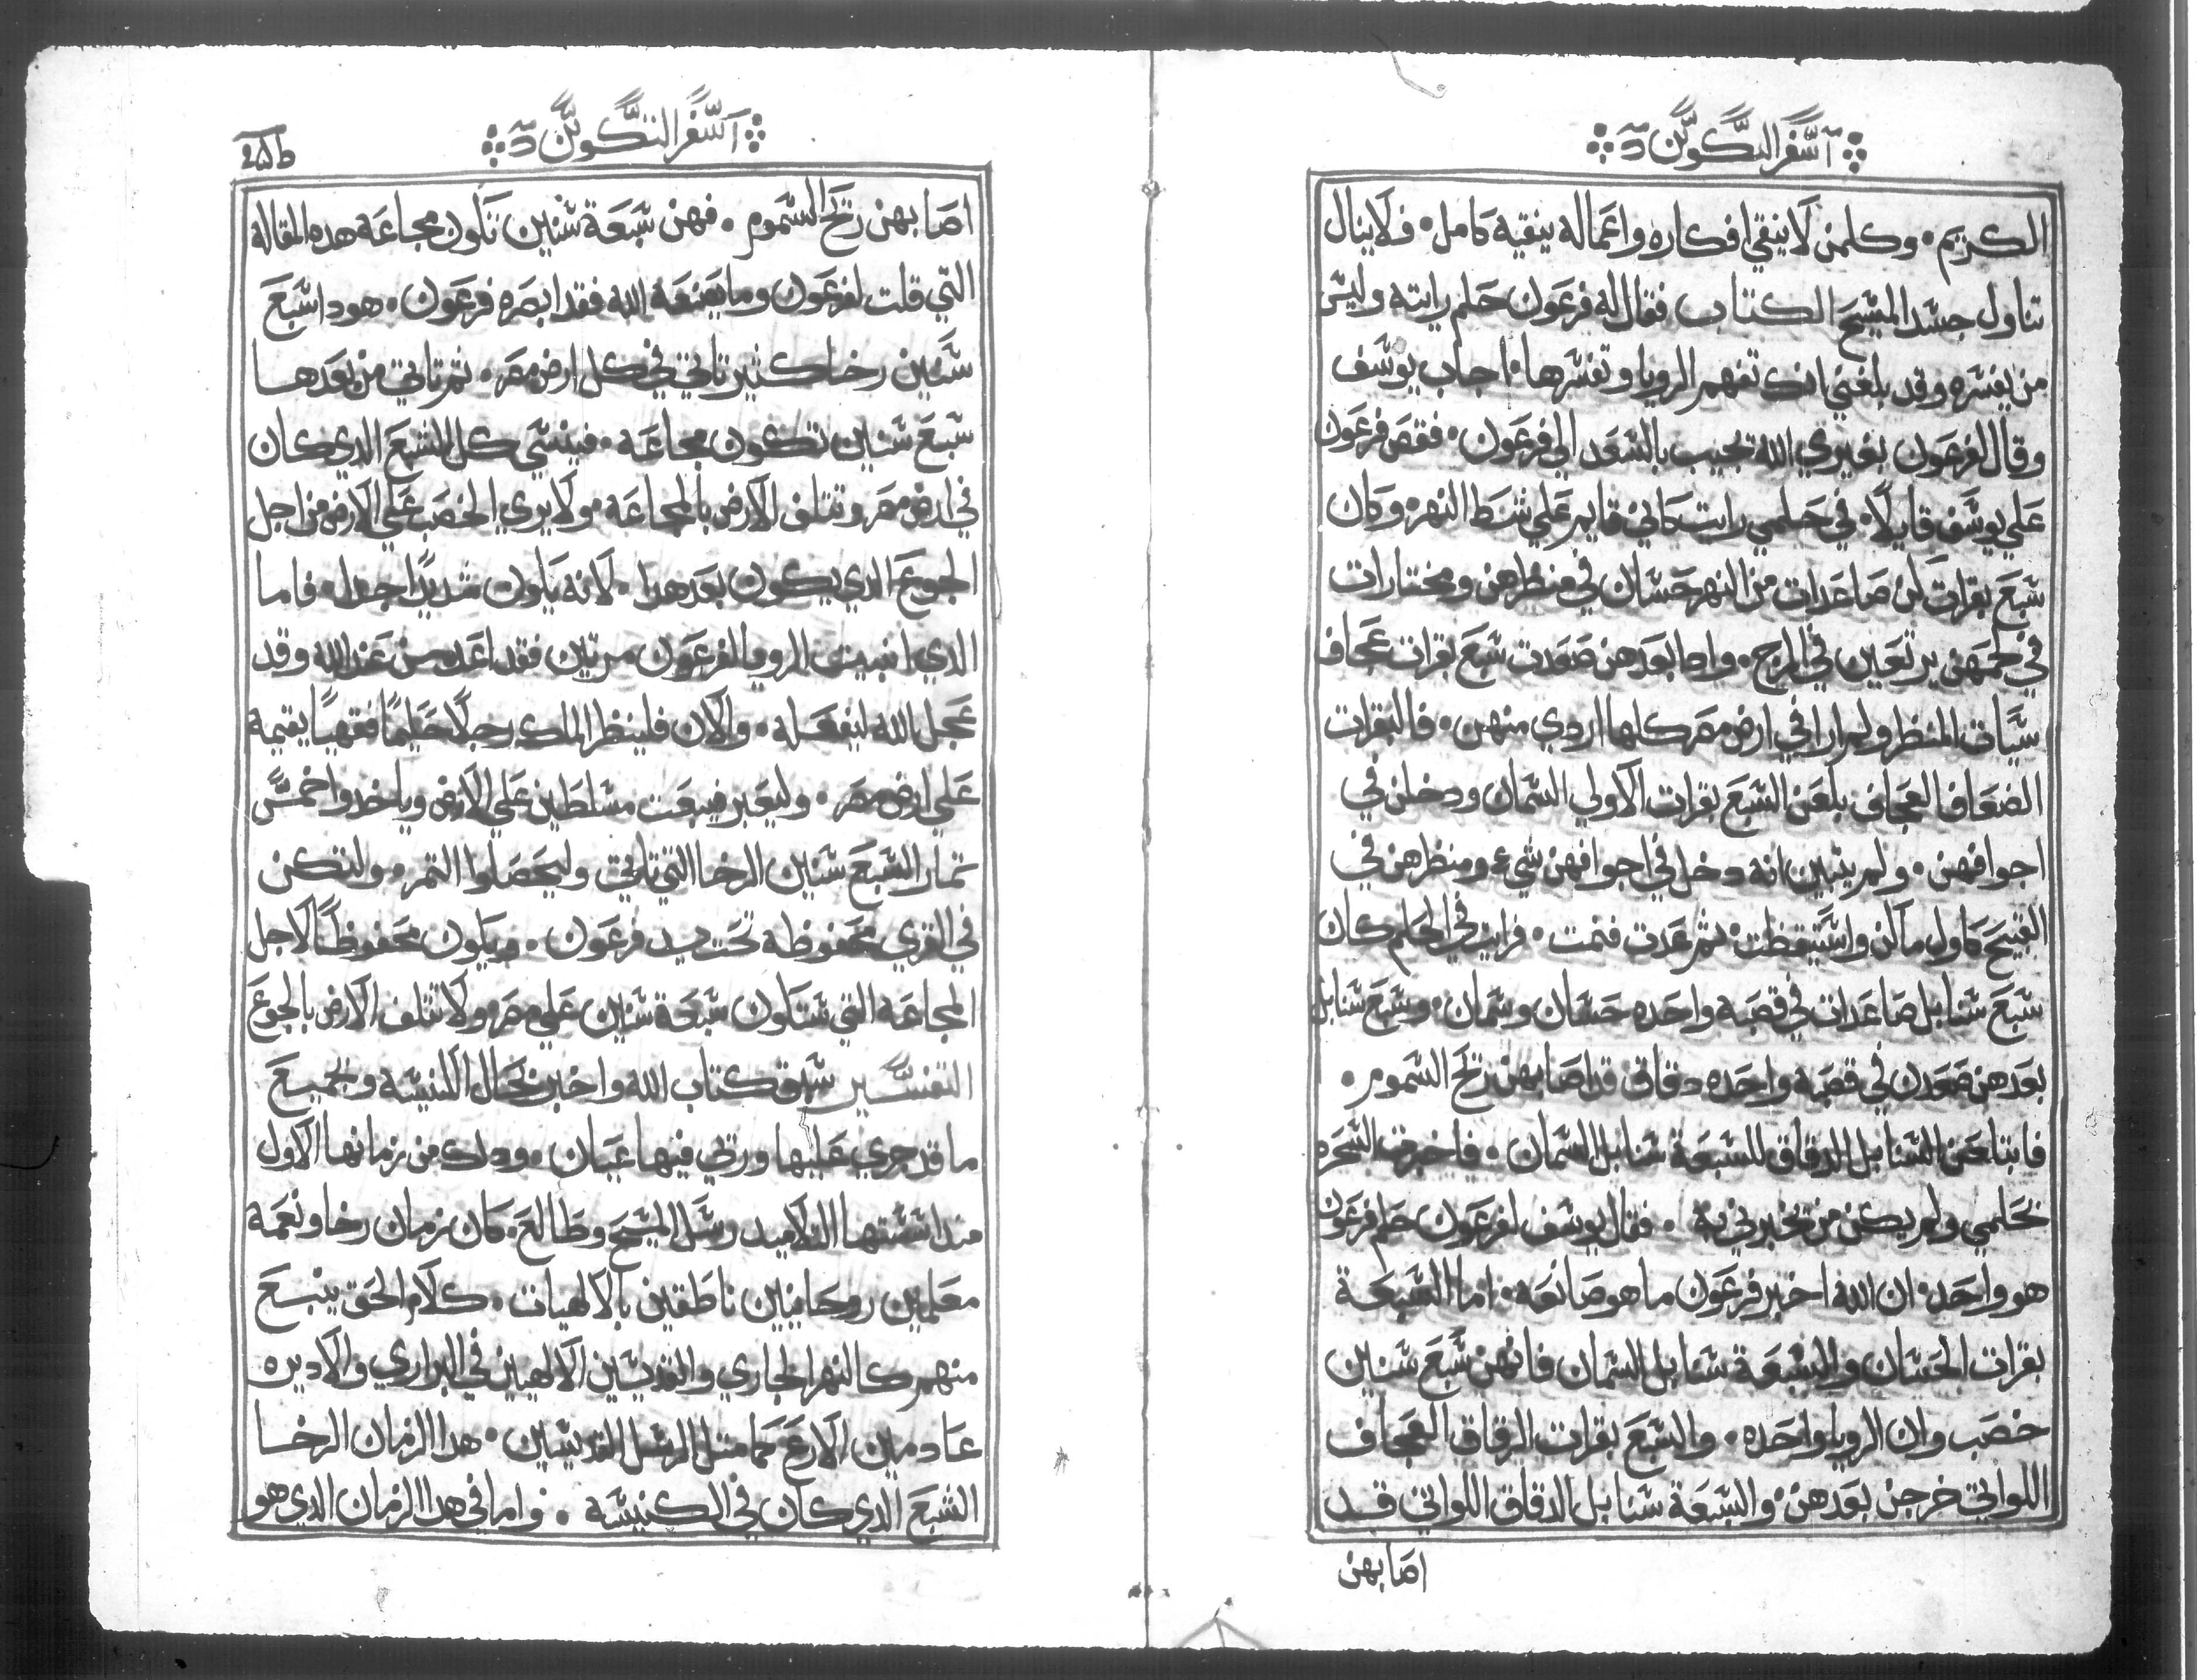 سفر التكوين
الكريم · وكلمن لا ينقي افكاره واعماله بنقيه كامل · فلا ينال
تناول جسد المسيح الكتاب فقال له فرعون حلم رايته وليس
من يفسره وقد بلغني انك تفهم الرويا وتفسرها · اجاب يوسف
وقال لفرعون بغيري الله تجيب بالسعد الي فرعون · فقص فرعون
علي يوسف قايلاً · في حلمي رايت كاني قايم علي شط النهر · وكان
سبع بقرات كن صاعدات من النهر حسان في منظرهن ومختارات
في لحمهن يرتعين في المرج · وادا بعدهن صعدت سبع بقرات عجاف
سيات المنظر ولم ارا في ارض مصر كلها اردي منهن · فالبقرات
الضعاف العجاف بلعن السبع بقرات الاولي السمان ودخلن في
اجوافهن · ولم يتبين انه دخل في اجوافهن شيء ومنظرهن في
القبيح كاول ما كن واستيقظت · ثم عدت فنمت · فرايت في الحلم كان
سبع سنابل صاعدات في قصبه واحده حسان وسمان · وسبع سنابل
بعدهن صعدن في قصبه واحده دقاق قد اصابهن ريح السموم ·
فابتلعن السنابل الدقاق للسبعة سنابل السمان · فاخبرت السحره
بحلمي ولم يكن من يخبرني به · فقال يوسف لفرعون حلم فرعون
هو واحد · ان الله اخبر فرعون ما هو صانعه · اما السبعة
بقرات الحسان والسبعة سنابل السمان فانهن سبع سنين
خصب وان الرويا واحده · والسبع بقرات الرقاق العجاف
اللواتي خرجن بعدهن · والسبعة سنابل الدقاق اللواتي قد
اصابهن
سفر التكوين
اصابهن ريح السموم · فهن سبعة سنين تكون مجاعة هده المقاله
التي قلت لفرعون وما يصنعه الله فقد ابصره فرعون · هودا سبع
سنين رخا كثير تاتي في كل ارض مصر · ثم تاتي من بعدها
سبع سنين تكون مجاعه · فينسي كل الشبع الدي كان
في ارض مصر وتتلف الارض بالمجاعه · ولا يري الخصب علي الارض من اجل
الجوع الدي يكون بعد هدا · لانه يكون شديدًا جدا · فاما
الدي الرويا لفرعون مرتين فقد من عند الله وقد
عجل الله ليفعله · والان فلينظر الملك رجلاً حكيمًا فقهيًا يقيمه
علي ارض مصر · وليعبر مسلطين علي الارض وياخدوا خمس
تمار السبع سنين الرخا التي تاتي وليحصلوا التمر · ولتكن
في القري محفوظه تحت يد فرعون · ويكون محفوظًا لاجل
المجاعه التي ستكون سبعة سنين علي مصر ولا تتلف الارض بالجوع
التفسير سبق كتاب الله واخبر بحال الكنيسه وبجميع
ما قد جري عليها ورتي فيها عيان · ودلك من زمانها الاول
مند اسستها التلاميد رسل المسيح وطالع · كان زمان رخا ونعمه
معلمين روحانيين ناطقين بالالهيات · كلام الحق ينبع
منهم كالنهر الجاري والقديسين الالهين في البراري والاديره
عادمين الاوجاع متل الرسل القديسين · هدا الزمان الرخا
الشبع الدي كان في الكنيسه · واما في هدا الزمان الدي هو